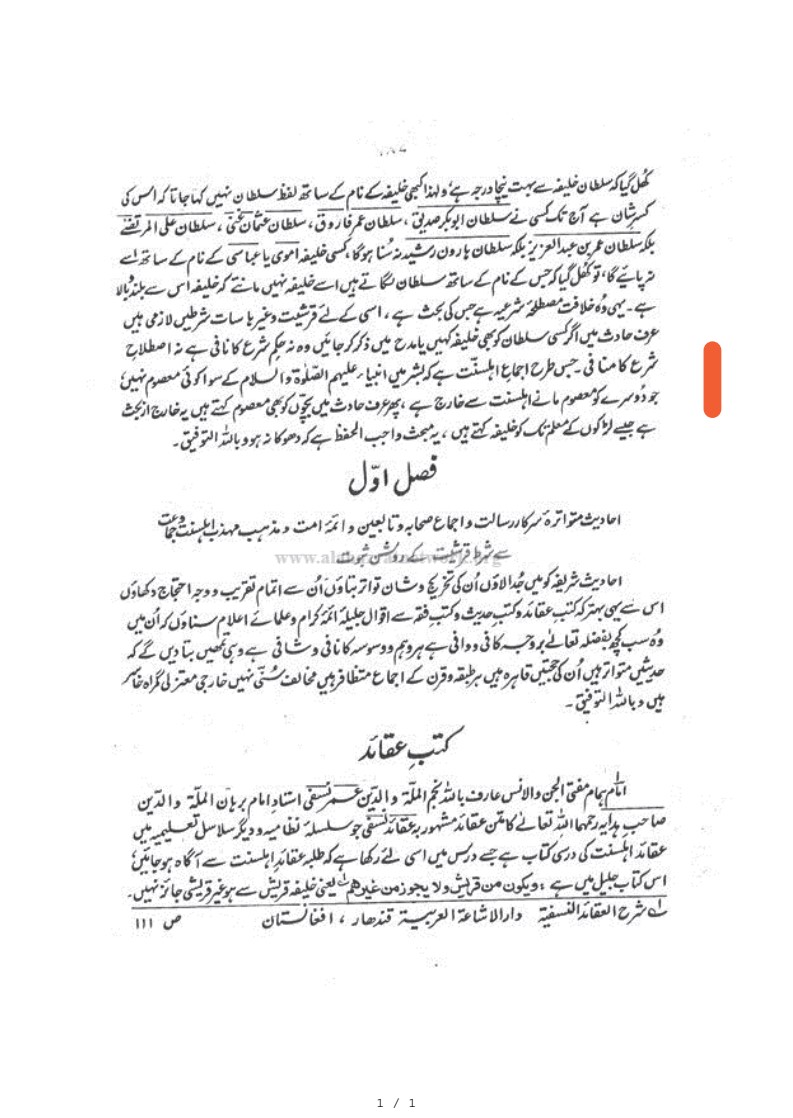 کُھل گیا کہ سلطان خلیفہ سے بہت نیچا درجہ ہے، ولہذا کبھی خلیفہ کے نام کے ساتھ لفظ سلطان نہیں کہا جاتا کہ اس کی
کسرِ شان ہے آج تک کسی نے سلطان ابوبکر صدیق، سلطان عمر فاروق، سلطان عثمان غنی، سلطان علی المرتضےٰ
بلکہ سلطان عمر بن عبدالعزیز بلکہ سلطان ہارون رشید نہ سُنا ہوگا، کسی خلیفہ اموی یا عباسی کے نام کے ساتھ اسے
نہ پائیے گا، تو کُھل گیا کہ جس کے نام کے ساتھ سلطان لگاتے ہیں اسے خلیفہ نہیں مانتے کہ خلیفہ اس سے بلند و بالا
ہے۔ یہی وُہ خلافت مصطلحہ شرعیہ ہے جس کی بحث ہے، اسی کے لئے قرشیت وغیرہا سات شرطیں لازمی ہیں
عرف حادث میں اگر کسی سلطان کو بھی خلیفہ کہیں یا مدح میں ذکر کر جائیں وہ نہ حکمِ شرع کا نافی ہے نہ اصطلاحِ
شرع کا منافی۔ جس طرح اجماعِ اہلسنّت ہے کہ بشر میں انبیاء علیہم الصلوٰۃ والسلام کے سوا کوئی معصوم نہیں،
جو دُوسرے کو معصوم مانے اہلسنت سے خارج ہے، پھر عرف حادث میں بچّوں کو بھی معصوم کہتے ہیں یہ خارج از بحث
ہے جیسے لڑکوں کے معلم تک کو خلیفہ کہتے ہیں، یہ مبحث واجب الحفظ ہے کہ دھوکا نہ ہو وباللہ التوفیق۔
فصل اوّل
احادیث متواترہ سرکار رسالت و اجماع صحابہ و تابعین و ائمۂ امت و مذہب مہذب اہلسنت و جماعت
سے شرط قرشیت کے روشن ثبوت
www.alahazratnetwork.org
احادیث شریفہ کو میں جُدا لاؤں اُن کی تخریج و شان تواتر بتاؤں اُن سے اتمام تقریب و وجہ احتجاج دکھاؤں
اس سے یہی بہتر کہ کتب عقائد و کتب حدیث و کتب فقہ سے اقوال جلیلۂ ائمہ کرام و علمائے اعلام سناؤں کہ اُن میں
وُہ سب کچھ بفضلہ تعالےٰ بروجہ کافی و وافی ہے ہر وہم و وسوسہ کا نافی و شافی ہے وہی تمھیں بتادیں گے کہ
حدیثیں متواتر ہیں اُن کی حجتیں قاہرہ ہیں ہر طبقہ و قرن کے اجماع متظافر ہیں مخالف سُنّی نہیں خارجی معتزلی گمراہ خاسر
ہیں وباللہ التوفیق۔
کتبِ عقائد
امام ہمام مفتی الجن والانس عارف باللہ نجم الملّۃ والدین عمر نسفی استاد امام برہان الملّۃ والدین
صاحبِ ہدایہ رحمہما اللہ تعالےٰ کا متن عقائد مشہور بہ عقائد نسفی جو سلسلۂ نظامیہ و دیگر سلاسل تعلیمیہ میں
عقائد اہلسنت کی درسی کتاب ہے جسے درس میں اسی لئے رکھا ہے کہ طلبہ عقائدِ اہلسنت سے آگاہ ہوجائیں،
اس کتاب جلیل میں ہے: ویکون من قریش ولا یجوز من غیرھم یعنی خلیفہ قریش سے ہو غیر قریشی جائز نہیں۔
شرح العقائد النسفیۃ دارالاشاعۃ العربیۃ قندھار، افغانستان ص ۱۱۱
1 / 1